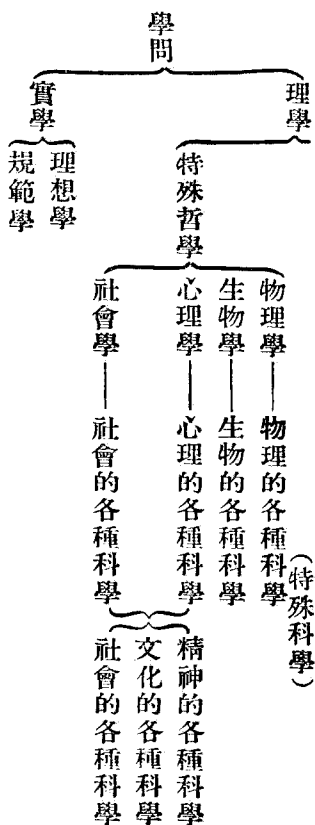 學問
理學
實學
特殊哲學
理想學
規範學
物理學——物理的各種科學(特殊科學)
生物學——生物的各種科學
心理學——心理的各種科學
社會學——社會的各種科學
精神的各種科學
文化的各種科學
社會的各種科學